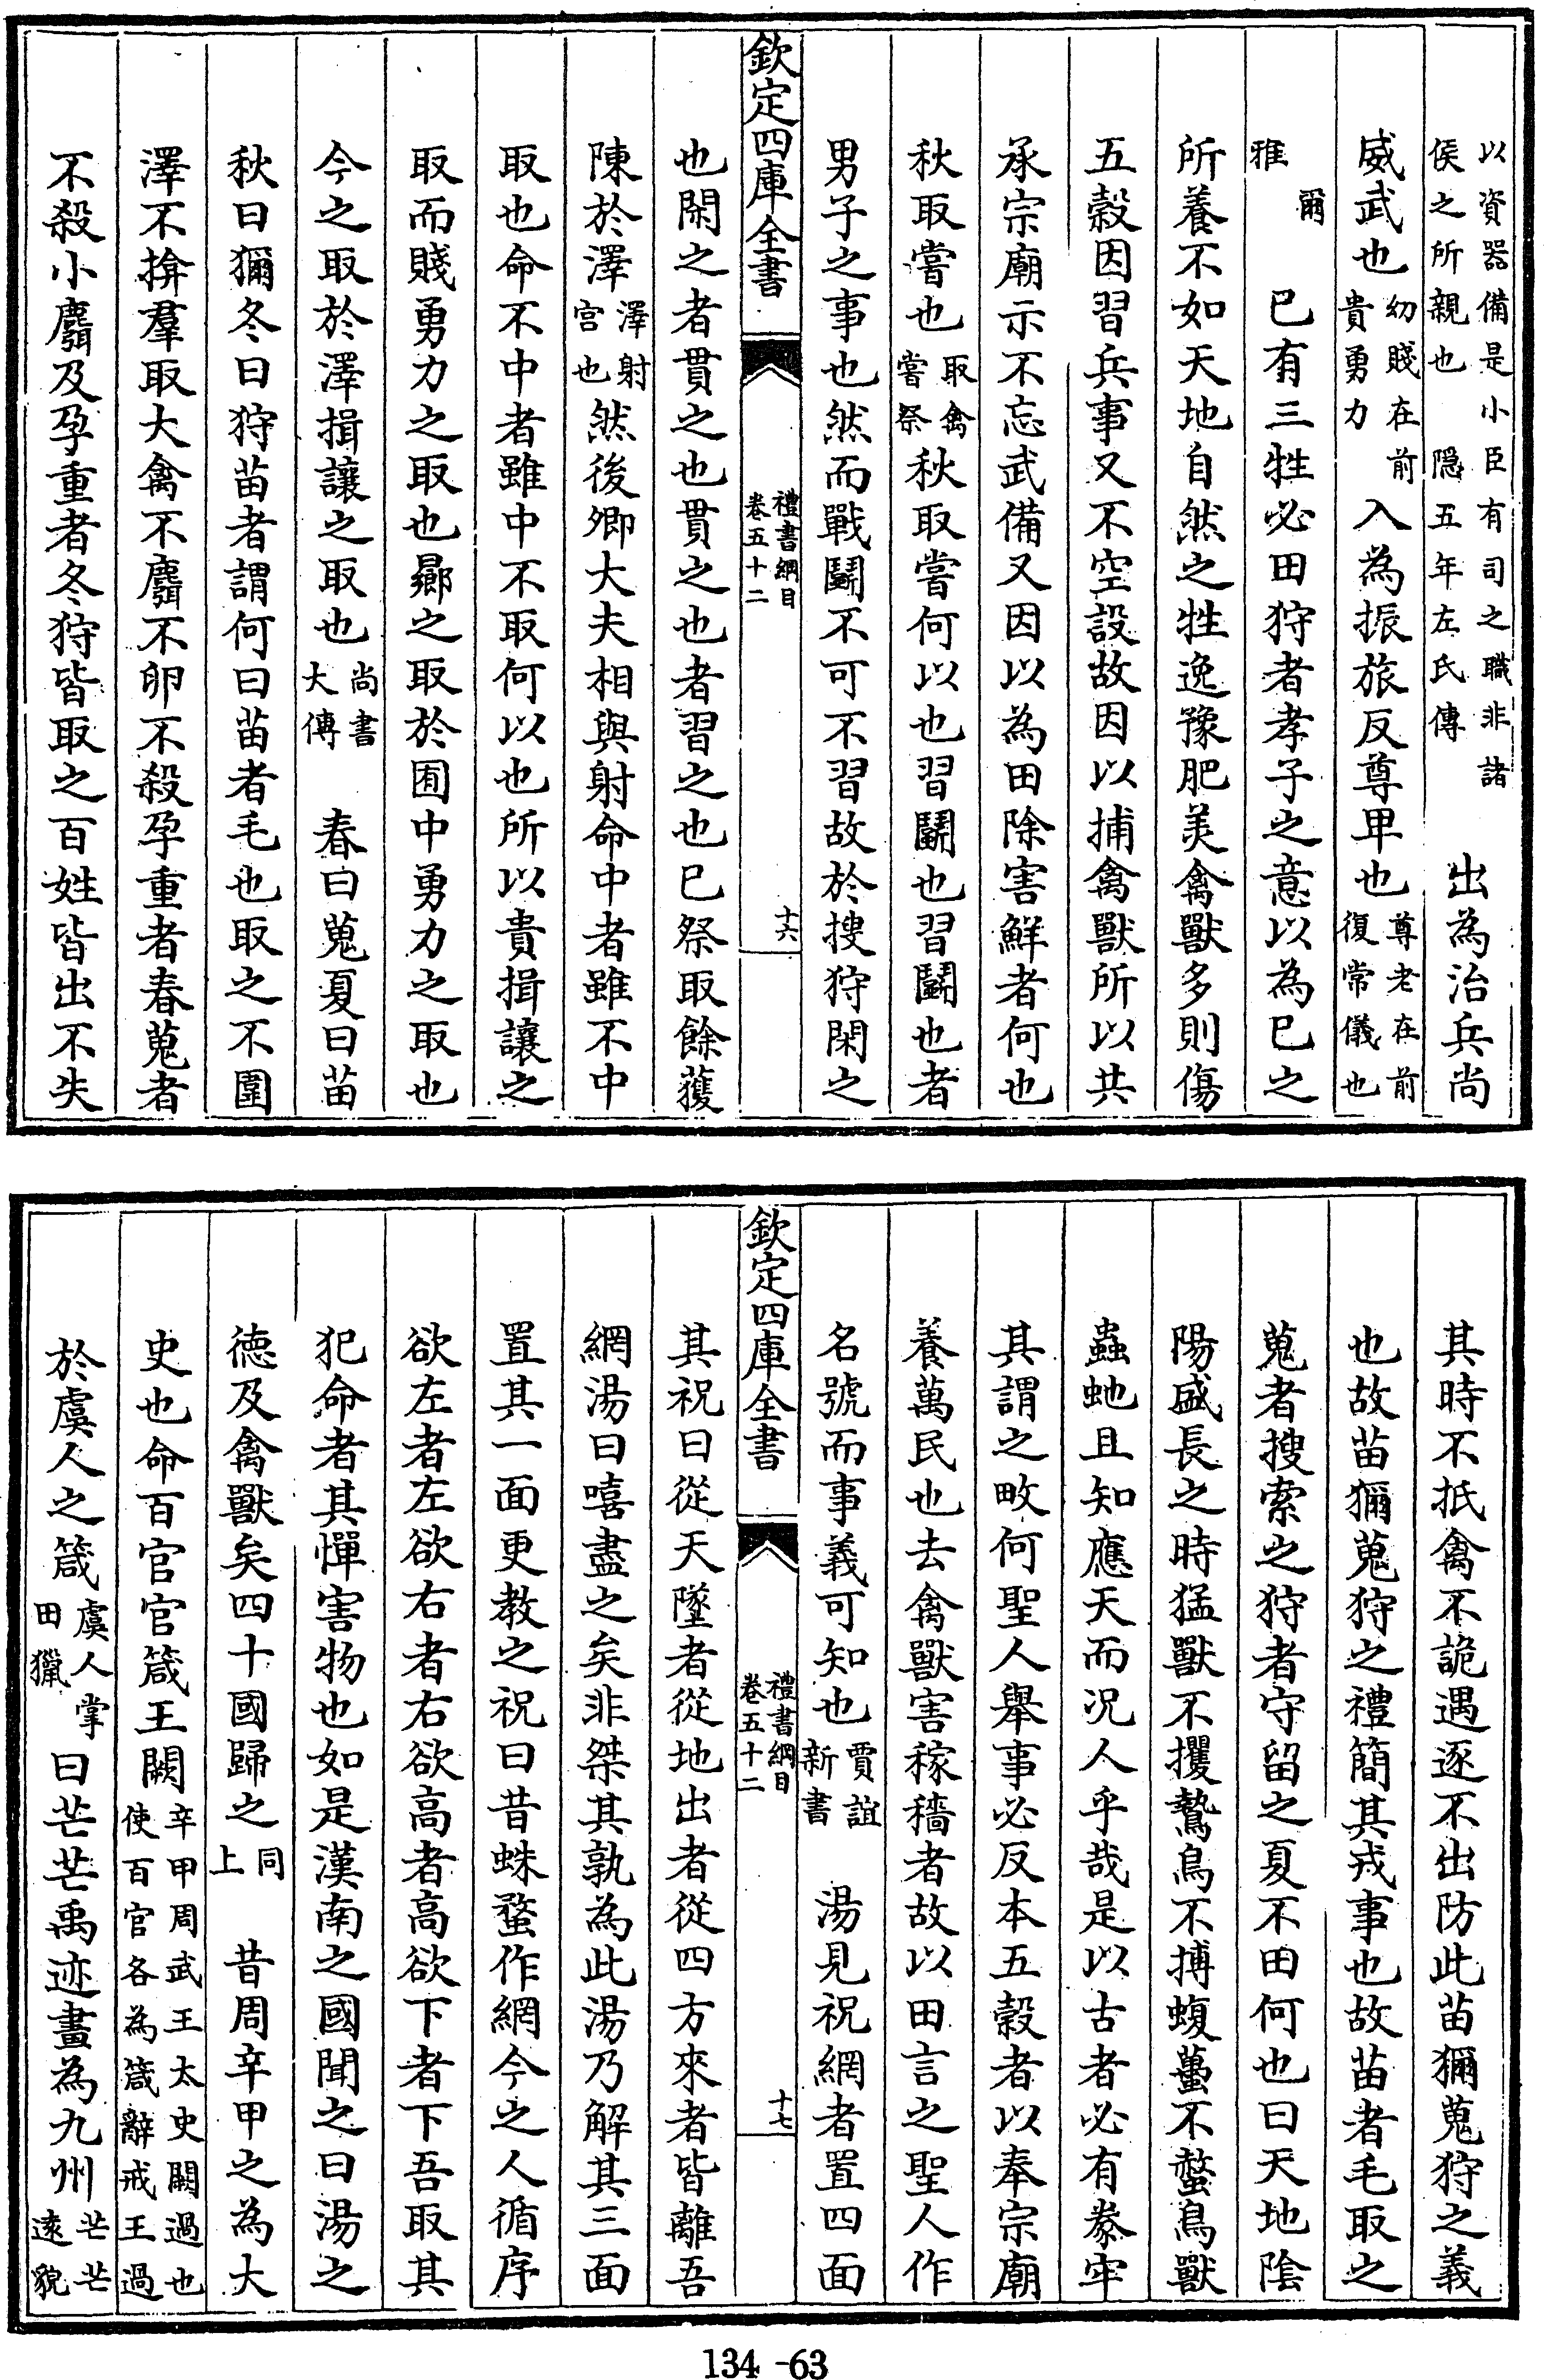 以資器備是小臣有司之職非諸
侯之所親也　隱五年左氏傳
出為治兵尚
威武也
幼賤在前
貴勇力
入為振旅反尊卑也
尊老在前
復常儀也
爾
雅
已有三牲必田狩者孝子之意以為已之
所養不如天地自然之牲逸豫肥美禽獸多則傷
五穀因習兵事又不空設故因以捕禽獸所以共
承宗廟示不忘武備又因以為田除害鮮者何也
秋取嘗也
取禽
嘗祭
秋取嘗何以也習鬭也習鬭也者
男子之事也然而戰鬭不可不習故於搜狩閑之
欽定四庫全書
禮書綱目
卷五十二
十六
也閑之者貫之也貫之也者習之也已祭取餘獲
陳於澤
澤射
宫也
然後卿大夫相與射命中者雖不中
取也命不中者雖中不取何以也所以貴揖讓之
取而賤勇力之取也鄉之取於囿中勇力之取也
今之取於澤揖讓之取也
尚書
大傳
春曰蒐夏曰苗
秋曰獮冬曰狩苗者謂何曰苗者毛也取之不圍
澤不揜羣取大禽不麛不卵不殺孕重者春蒐者
不殺小麛及孕重者冬狩皆取之百姓皆出不失
其時不抵禽不詭遇逐不出防此苗獮蒐狩之義
也故苗獮蒐狩之禮簡其戎事也故苗者毛取之
蒐者搜索之狩者守留之夏不田何也曰天地陰
陽盛長之時猛獸不攫鷙鳥不搏蝮蠆不螫鳥獸
蟲虵且知應天而况人乎哉是以古者必有豢牢
其謂之畋何聖人舉事必反本五穀者以奉宗廟
養萬民也去禽獸害稼穡者故以田言之聖人作
名號而事義可知也
賈誼
新書
湯見祝網者置四面
欽定四庫全書
禮書綱目
卷五十二
十七
其祝曰從天墜者從地出者從四方來者皆離吾
網湯曰嘻盡之矣非桀其孰為此湯乃解其三面
置其一面更教之祝曰昔蛛蝥作網今之人循序
欲左者左欲右者右欲高者高欲下者下吾取其
犯命者其憚害物也如是漢南之國聞之曰湯之
德及禽獸矣四十國歸之
同
上
昔周辛甲之為大
史也命百官官箴王闕
辛甲周武王太史闕過也
使百官各為箴辭戒王過
於虞人之箴
虞人掌
田獵
曰芒芒禹迹畫為九州
芒芒
遠貌
134-63